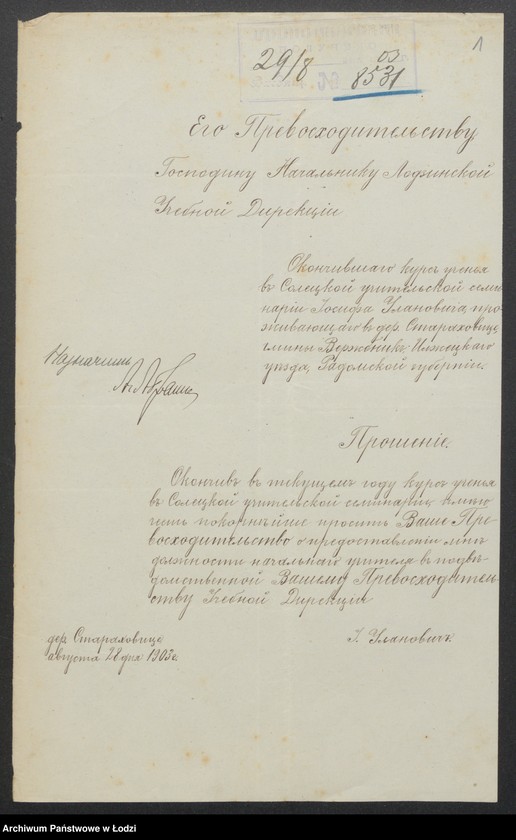 1
29/8
03
8531
Его Превосходительству
Господину Начальнику Лодзинской
Учебной Дирекціи
Окончившаго курсъ ученья
въ Солецкой учительской семи
наріи Іосифа Улановича, про-
живающаго въ дер. Стараховице,
гмины Вержбникъ, Илжецкаго
уѣзда, Радомской губерніи.
Назначить
Прошеніе.
Окончивъ въ текущемъ году курсъ ученья
въ Солецкой учительской семинаріи, имѣю
честь покорнѣйше просить Ваше Пре-
восходительство о предоставленіи мнѣ
должности начальнаго учителя въ подвѣ-
домственной Вашему Превосходитель-
ству Учебной Дирекціи
дер. Стараховице
августа 28 дня 1903 г.
І. Улановичъ.
Archiwum Państwowe w Łodzi